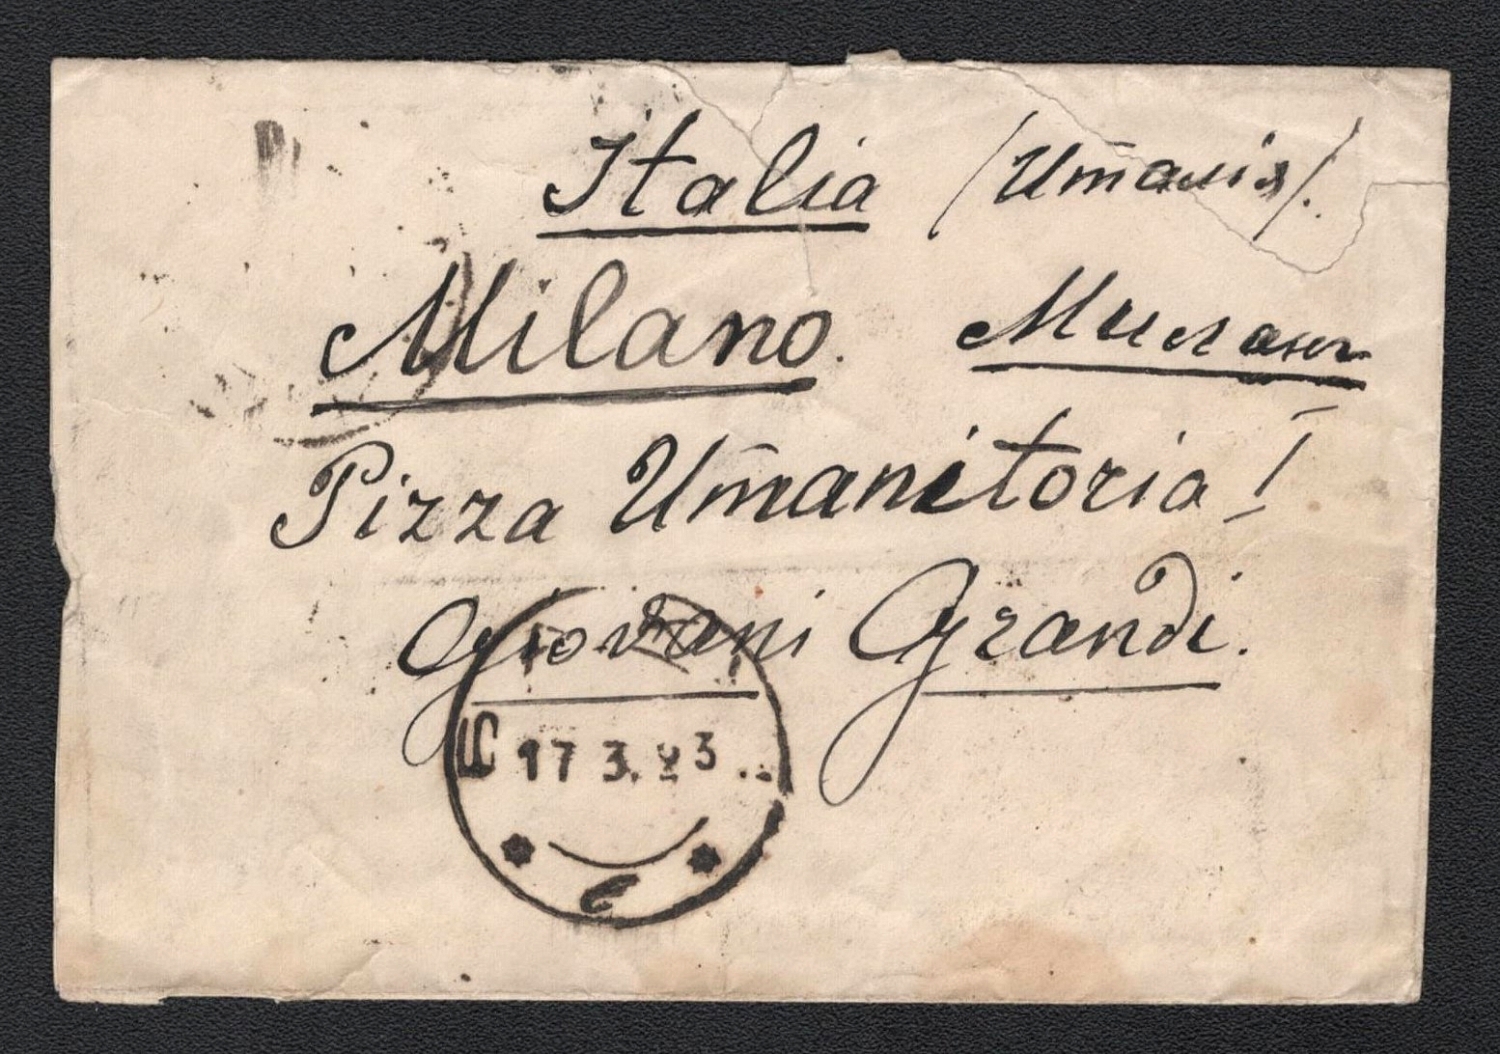 Italia (Италія).
Milano. Милан
Pizza Umanitoria I
Giovani Grandi.
17 3. 23
е